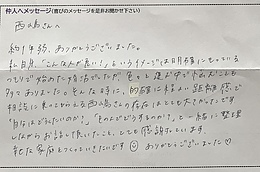 仲人へメッセージ(喜びのメッセージを是非お聞かせ下さい)
西山さんへ
約1年弱、ありがとうございました。
私自身、「こんな人が良い」というイメージは明確にもっている
つもりで始めた婚活でしたが、
多々ありました。そんな時に、的確に程よい距離感で
相談に乗って下さる西山さんの存在はとても大きかったです。
「自分はどうしたいのか?」「そのためにどうするのか?」と一緒に整理
しながらお話し頂いたこと、とても感謝しています。
幸せな家庭をつくっていきたいです☺ ありがとうございました♡